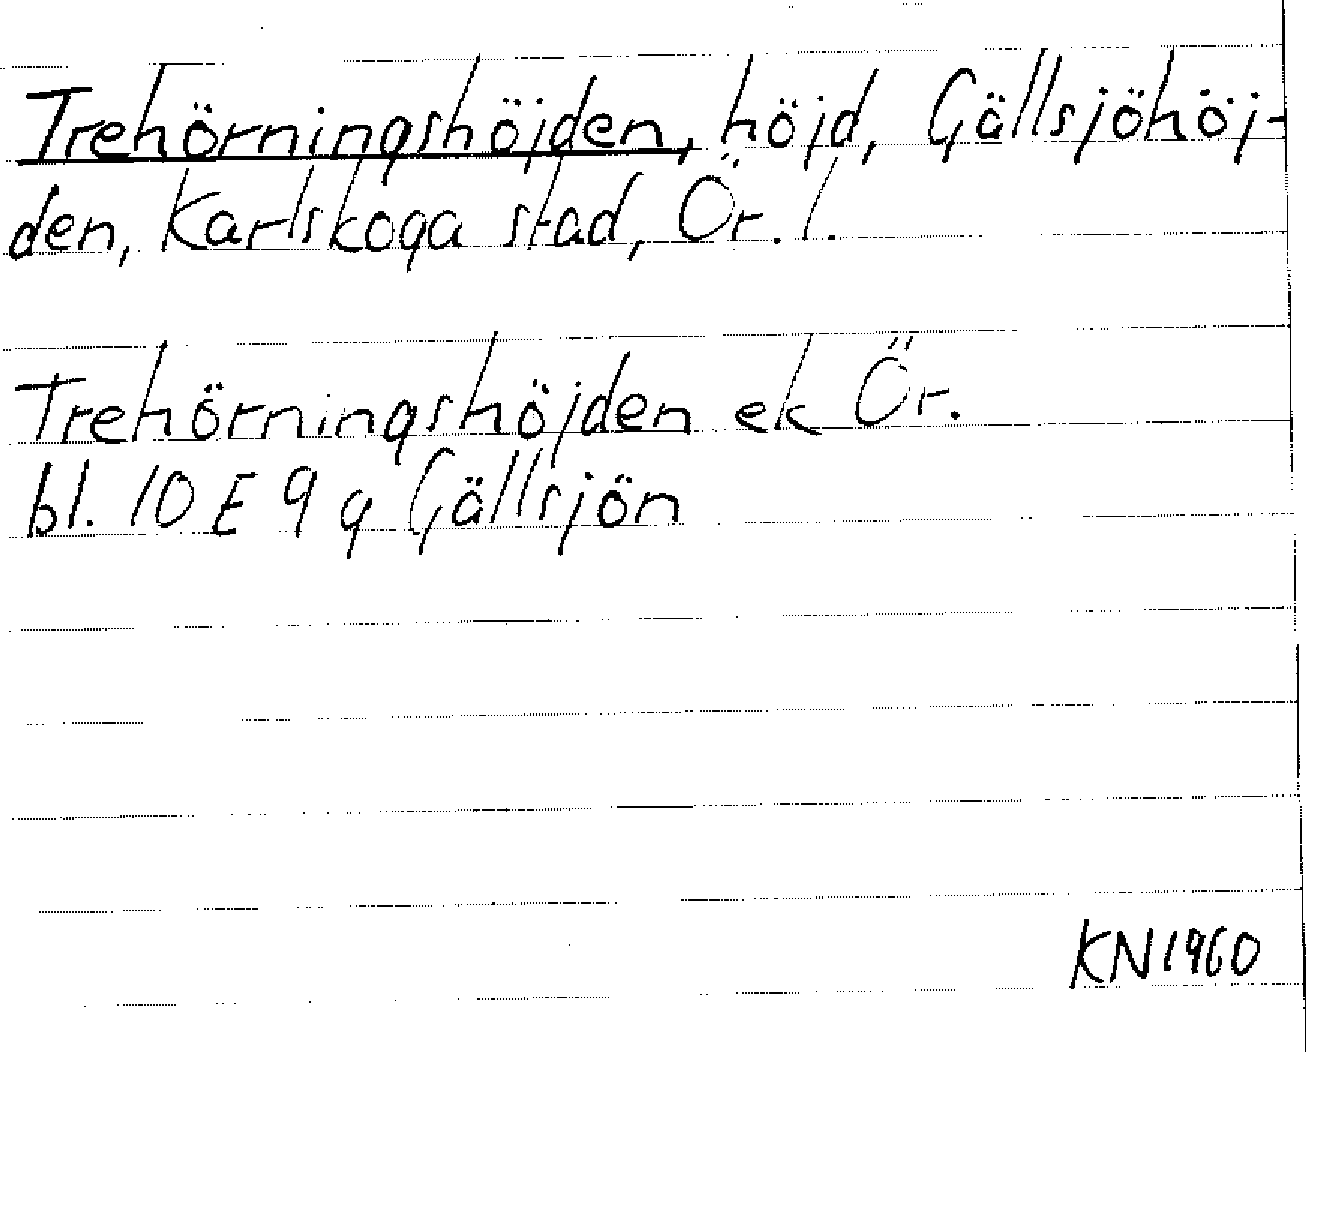 Trehörningshöjden, höjd, Gällsjöhöj-
den, Karlskoga stad, Ör. l.
Trehörningshöjden ek Ör.
bl. 10 E 9 g Gällsjön
KN1960